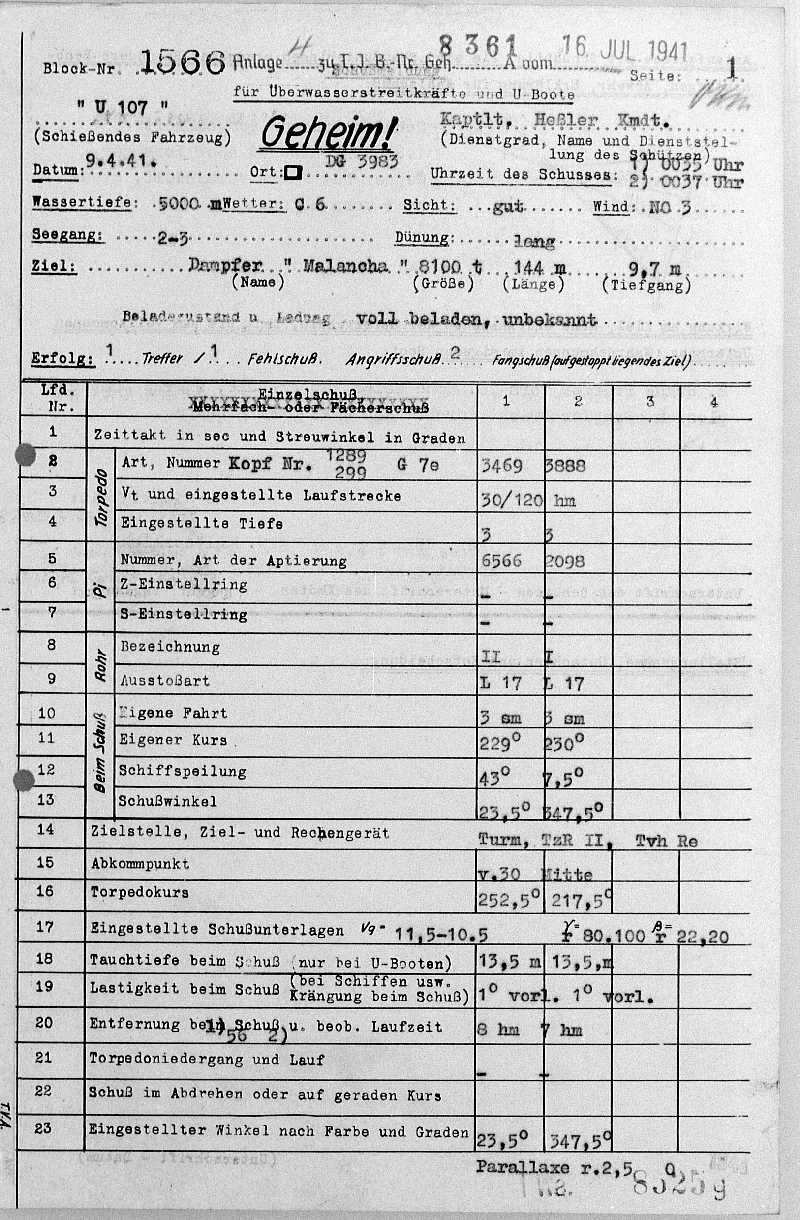 8361 16 JUL 1941
Block-Nr. 1566 Anlage 4 zu T.J.B.-Nr. Geh. A vom Seite: 1
für Überwasserstreitkräfte und U-Boote
" U 107 " Kaptlt. Heßler Kmdt.
(Schießendes Fahrzeug) Geheim! (Dienstgrad, Name und Dienststel-
lung des Schützen)
Datum: 9.4.41. Ort: DG 3983 Uhrzeit des Schusses: 1) 0035 Uhr
2) 0037 Uhr
Wassertiefe: 5000 m Wetter: C 6 Sicht: gut Wind: NO 3
Seegang: 2-3 Dünung: lang
Ziel: Dampfer " Malancha " 8100 t 144 m 9,7 m
(Name) (Größe) (Länge) (Tiefgang)
Beladezustand u. Ladung voll beladen, unbekannt
Erfolg: 1 Treffer / 1 Fehlschuß. Angriffsschuß. 2 Fangschuß (auf gestoppt liegendes Ziel)
Lfd. Nr. Einzelschuß 1 2 3 4
Mehrfach- oder Fächerschuß
1 Zeittakt in sec und Streuwinkel in Graden
Torpedo
2 Art, Nummer Kopf Nr. 1289 299 G 7e 3469 3888
3 Vt und eingestellte Laufstrecke 30/120 hm
4 Eingestellte Tiefe 3 3
Pi
5 Nummer, Art der Aptierung 6566 2098
6 Z-Einstellring – –
7 S-Einstellring – –
Rohr
8 Bezeichnung II I
9 Ausstoßart L 17 L 17
Beim Schuß
10 Eigene Fahrt 3 sm 3 sm
11 Eigener Kurs 229° 230°
12 Schiffspeilung 43° 7,5°
13 Schußwinkel 23,5° 347,5°
14 Zielstelle, Ziel- und Rechengerät Turm, TzR II, Tvh Re
15 Abkommpunkt v.30 Mitte
16 Torpedokurs 252,5° 217,5°
17 Eingestellte Schußunterlagen Vg= 11,5-10.5 γ= r 80.100 β= r 22,20
18 Tauchtiefe beim Schuß (nur bei U-Booten) 13,5 m 13,5,m
19 Lastigkeit beim Schuß (bei Schiffen usw. Krängung beim Schuß) 1° vorl. 1° vorl.
20 Entfernung beim Schuß u. beob. Laufzeit 8 hm 7 hm
1) 56 2)
21 Torpedoniedergang und Lauf – –
22 Schuß im Abdrehen oder auf geraden Kurs
23 Eingestellter Winkel nach Farbe und Graden 23,5° 347,5°
Parallaxe r.2,5